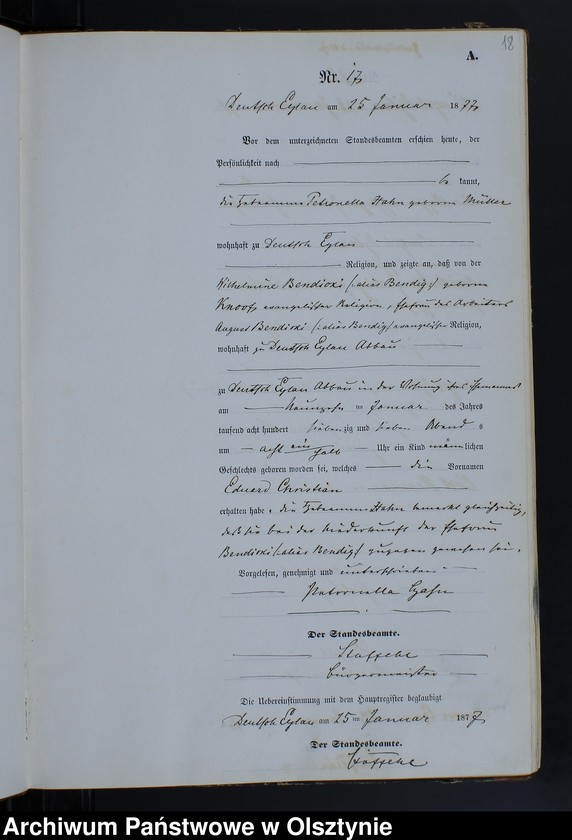 18
A.
Nr. 17
Deutsch Eylau am 25 Januar 1877
Vor dem unterzeichneten Standesbeamten erschien heute, der
Persönlichkeit nach
be kannt,
die Hebeamme Petronella Hahn geborene Müller
wohnhaft zu Deutsch Eylau
Religion, und zeigte an, daß von der
Wilhelmine Bendicki (:alias Bendig:) geborene
Knoof, evangelischer Religion, Ehefrau des Arbeiters
August Bendicki (:alias Bendig) evangelischer Religion,
wohnhaft zu Deutsch Eylau Abbau
zu Deutsch Eylau Abbau in der Wohnung ihres Ehemannes
am neunzehn ten Januar des Jahres
tausend acht hundert siebenzig und sieben Abend s
um acht ein halb Uhr ein Kind männlichen
Geschlechts geboren worden sei, welches die Vornamen
Eduard Christian
erhalten habe. die Hebeamme Hahn bemerkt gleichzeitig,
daß sie bei der Niederkunft der Ehefrau
Bendicki (:alias Bendig:) zugegen gewesen sei.
Vorgelesen, genehmigt und unterschrieben
Petronella Hahn
Der Standesbeamte.
Bürgermeister
Die Uebereinstimmung mit dem Hauptregister beglaubigt
Deutsch Eylau am 25 ten Januar 1877
Der Standesbeamte.
Archiwum Państwowe w Olsztynie